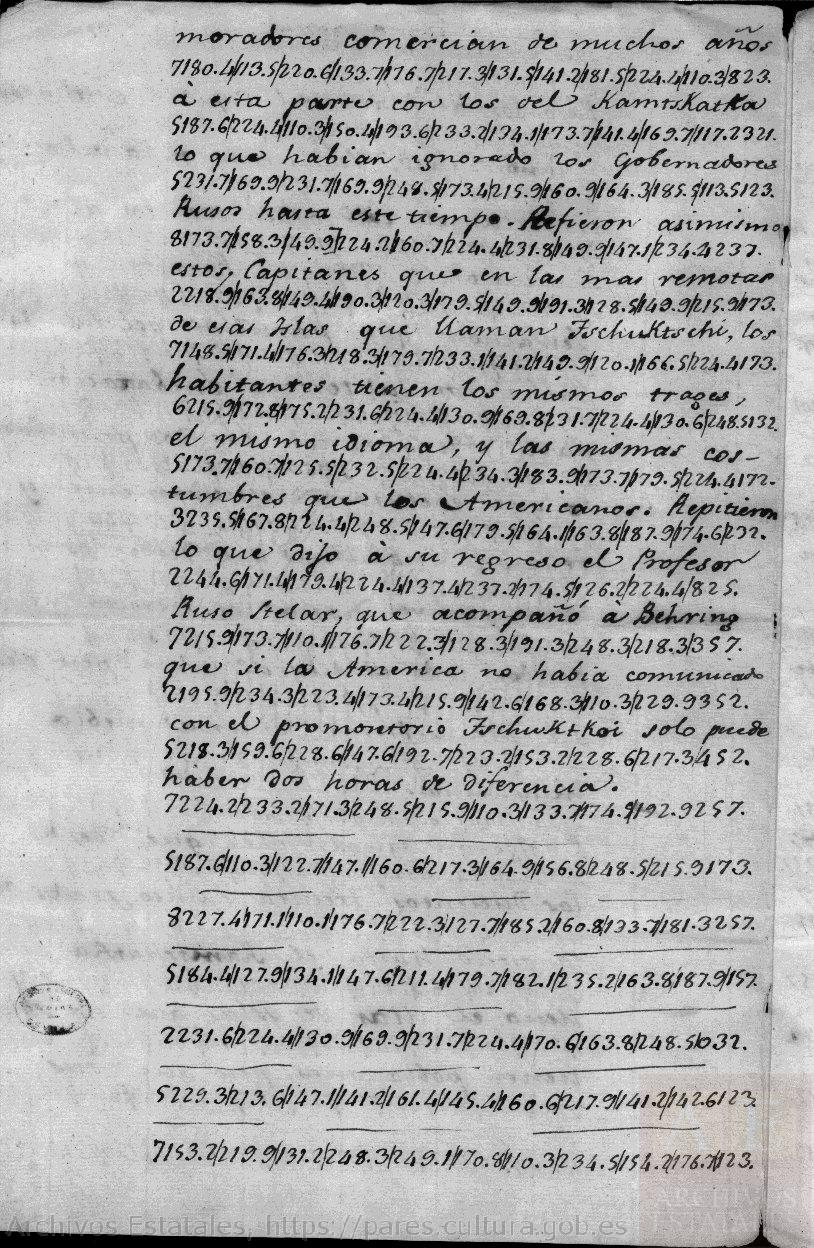 moradores comercian de muchos años
7180.4/113.5/220.6/133.7/176.7/217.3/131.5/141.2/181.5/224.4/110.3/823.
à esta parte con los del Kamtskatka
5187.6/224.4/110.3/150.4/193.6/233.2/134.1/173.7/141.4/169.7/117.2321.
lo que habian ignorado los Gobernadores
5231.7/169.9/231.7/169.9/248.5/173.4/215.9/160.9/164.3/185.5/113.5123.
Rusos hasta este tiempo. Refieron asimismo
8173.7/158.3/149.9/224.2/160.7/224.4/231.8/149.9/147.1/234.4237.
estos, Capitanes que en las mas remotas
2218.9/163.8/149.4/190.3/120.3/179.5/149.9/191.3/128.5/149.9/215.9/173.
de esas Islas que llaman Tschuktschi, los
7148.5/171.4/176.3/218.3/179.7/233.1/141.2/149.9/120.1/166.5/224.4173.
habitantes tienen los mismos trages,
6215.9/172.8/175.2/231.6/224.4/130.9/169.8/231.7/224.4/130.6/248.5132.
el mismo idioma, y las mismas cos-
5173.7/160.7/125.5/232.5/224.4/234.3/183.9/173.7/179.5/224.4172.
tumbres que los Americanos. Repitieron
3235.5/167.8/224.4/248.5/147.6/179.5/164.1/163.8/187.9/174.6/232.
lo que dijo à su regreso el Profesor
2244.6/171.4/179.4/224.4/137.4/237.2/174.5/126.2/224.4/825.
Ruso Stelar, que acompañó à Behring
7215.9/173.7/110.1/176.7/222.3/128.3/191.3/248.3/218.3/357.
que si la America no habia comunicado
2195.9/234.3/223.4/173.4/215.9/142.6/168.3/110.3/229.9352.
con el promontorio Tschuktkoi solo puede
5218.3/159.6/228.6/147.6/192.7/223.2/153.2/228.6/217.3/452.
haber dos horas de diferencia.
7224.2/233.2/171.3/248.5/215.9/110.3/133.7/174.9/192.9257.
5187.6/110.3/122.7/147.1/160.6/217.3/164.9/156.8/248.5/215.9173.
8227.4/171.1/110.1/176.7/222.3/127.7/185.2/160.8/133.7/181.3257.
5184.4/127.9/134.1/147.6/211.4/179.7/182.1/235.2/163.8/187.9/157.
2231.6/224.4/130.9/169.9/231.7/224.4/170.6/163.8/248.5/032.
5229.3/213.6/147.1/141.2/161.4/145.4/160.6/217.9/141.2/142.6123.
7153.2/219.9/131.2/248.3/249.1/170.8/110.3/234.5/154.2/176.7/123.
Archivos Estatales, https://pares.cultura.gob.es
ARCHIVOS
ESTATALES